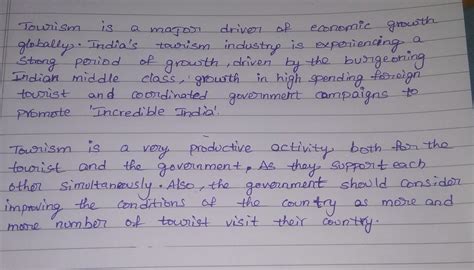 Tourism is a major driver of economic growth
globally. India's tourism industry is experiencing a
stong period of growth, driven by the burgeoning
Indian middle class, growth in high spending foreign
tourist and coordinated government campaigns to
promote 'Incredible India'.
Tourism is a very productive activity both for the
tourist and the government. As they support each
other simultaneously. Also, the government should consider
improving the conditions of the country as more and
more number of tourist visit their country.